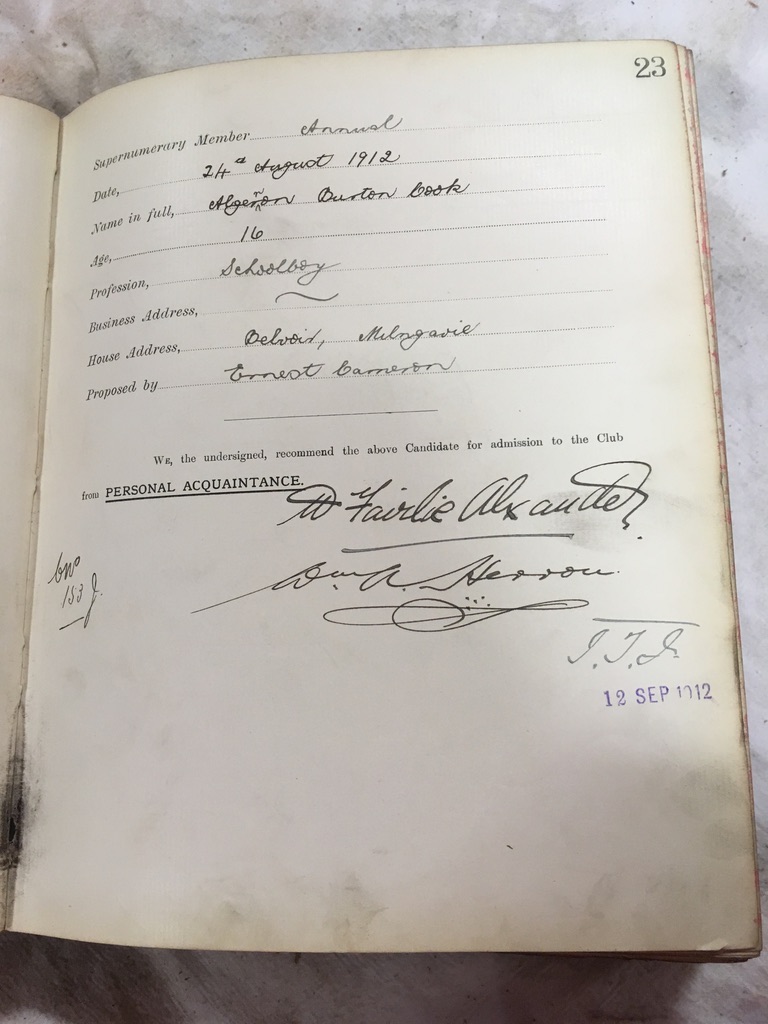 23
Supernumerary Member Annual
Date, 24th August 1912
Name in full, Algernon Burton Cook
Age, 16
Profession, Schoolboy
Business Address, ~
House Address, Belvoir, Milngavie
Proposed by Ernest Cameron
We, the undersigned, recommend the above Candidate for admission to the Club
from PERSONAL ACQUAINTANCE.
W Fairlie Alexander
Wm A. Herron
153
12 SEP 1912